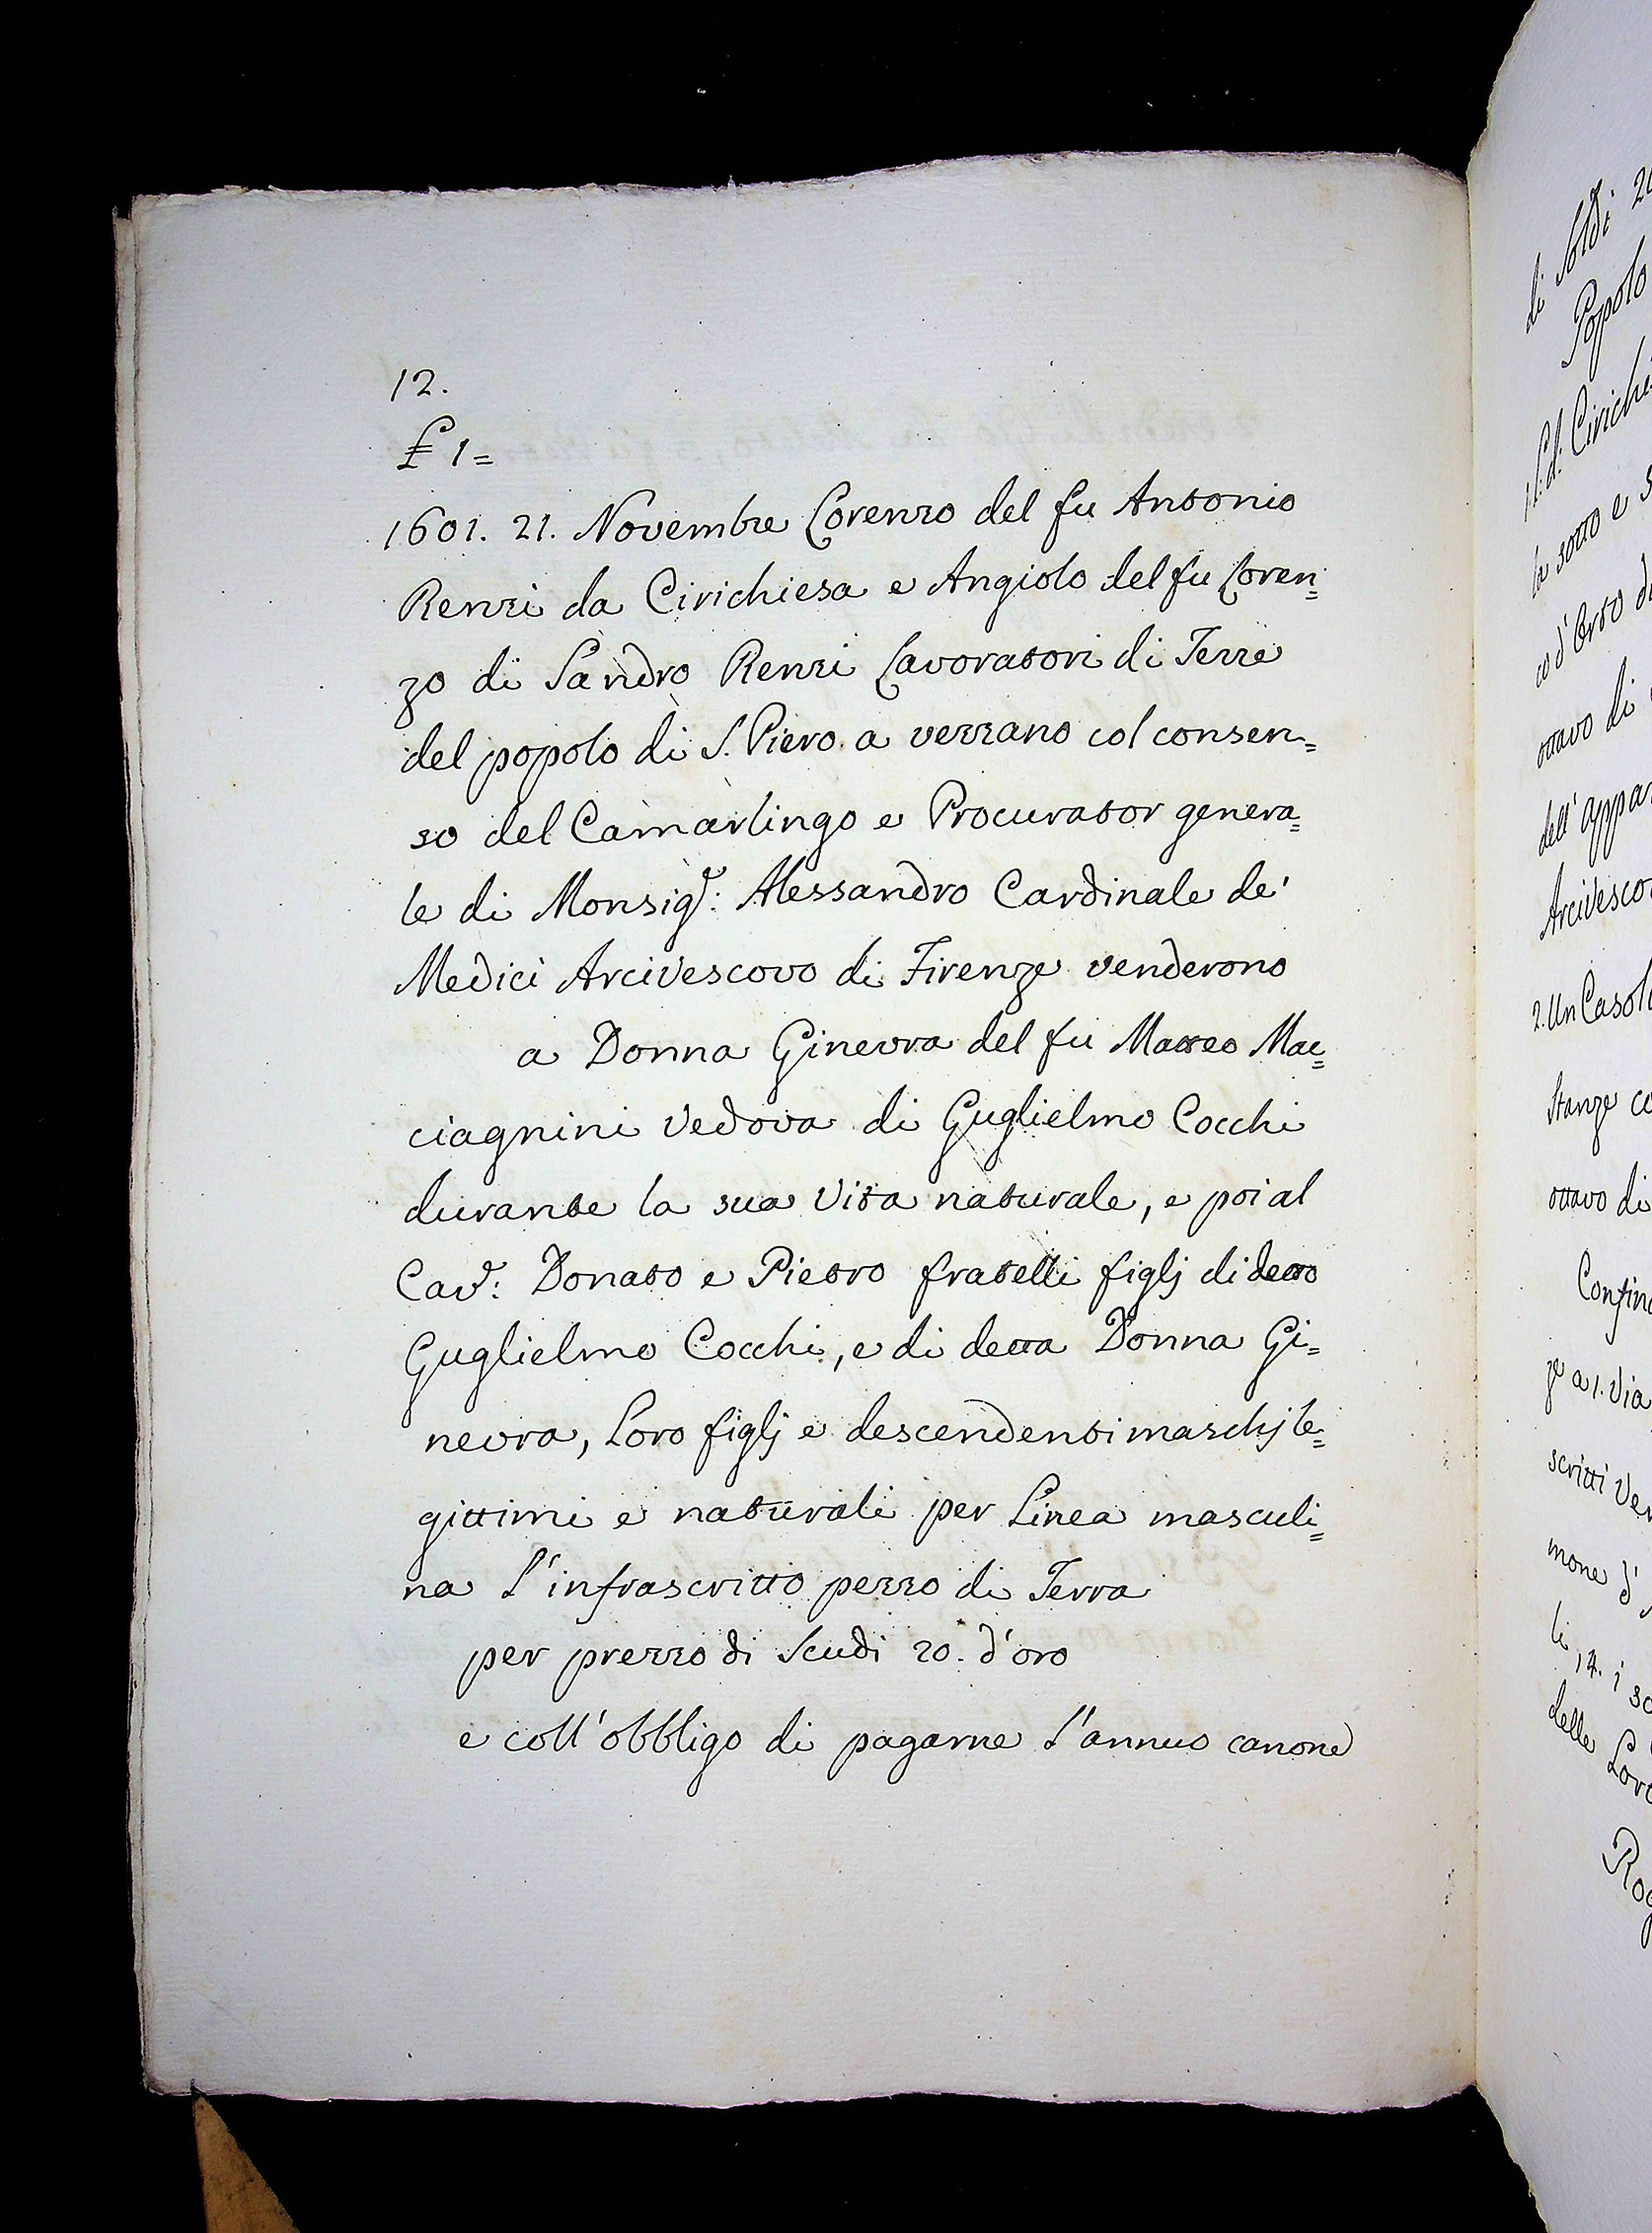 12.
£ 1=
1601. 21. Novembre Lorenzo del fu Antonio
Renzi da Cirichiesa e Angiolo del fu Loren=
zo di Sandro Renzi Lavoratori di Terre
del popolo di S. Piero a verzano col consen=
so del Camarlingo e Procurator genera=
le di Monsigr: Alessandro Cardinale de'
Medici Arcivescovo di Firenze venderono
a Donna Ginevra del fu Matteo Mac=
ciagnini Vedova di Guglielmo Cocchi
durante la sua Vita naturale, e poi al
Cavr: Donato e Pietro fratelli figlj di detto
Guglielmo Cocchi, e di detta Donna Gi=
nevra, Loro figlj e descendenti maschj le=
gittimi e naturali per Linea masculi=
na l'infrascritto pezzo di Terra
per prezzo di Scudi 20. d'oro
e coll'obbligo di pagarne l'annuo canone
di Soldi
Popolo
la sotto e
ottavo di
dell'appar
Arcivesco
2. Un Casol
Stanze co
ottavo di
Confin
ze a 1. Via
scritti Ven
mone d'
li 14.
delle Loro
Rog